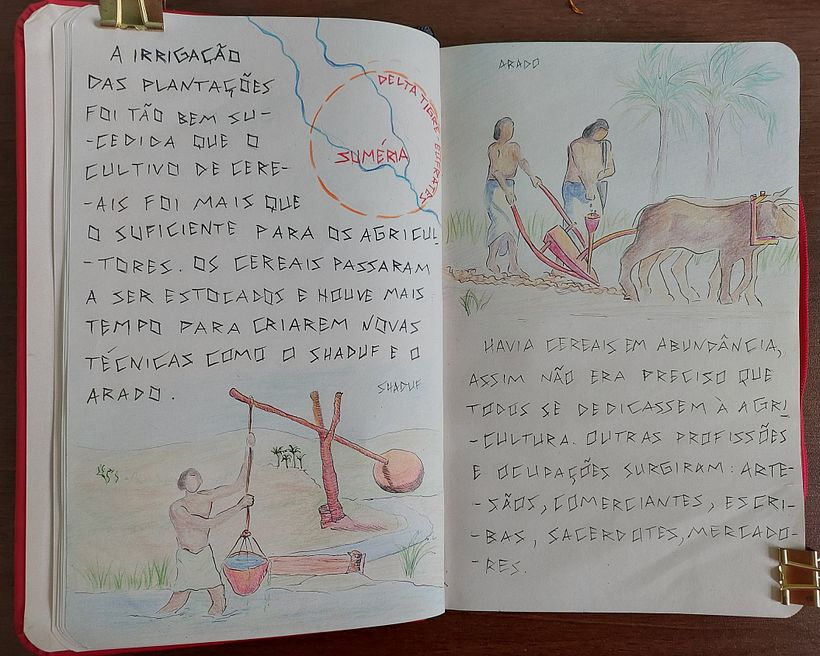 A IRRIGAÇÃO
DAS PLANTAÇÕES
FOI TÃO BEM SU-
-CEDIDA QUE O
CULTIVO DE CERE-
-AIS FOI MAIS QUE
O SUFICIENTE PARA OS AGRICUL
-TORES. OS CEREAIS PASSARAM
A SER ESTOCADOS E HOUVE MAIS
TEMPO PARA CRIAREM NOVAS
TÉCNICAS COMO O SHADUF E O
ARADO.
DELTA TIGRE EUFRATES
SUMÉRIA
SHADUF
ARADO
HAVIA CEREAIS EM ABUNDÂNCIA,
ASSIM NÃO ERA PRECISO QUE
TODOS SE DEDICASSEM À AGRI
-CULTURA. OUTRAS PROFISSÕES
E OCUPAÇÕES SURGIRAM: ARTE-
-SÃOS, COMERCIANTES, ESCRI-
-BAS, SACERDOTES, MERCADO-
-RES.